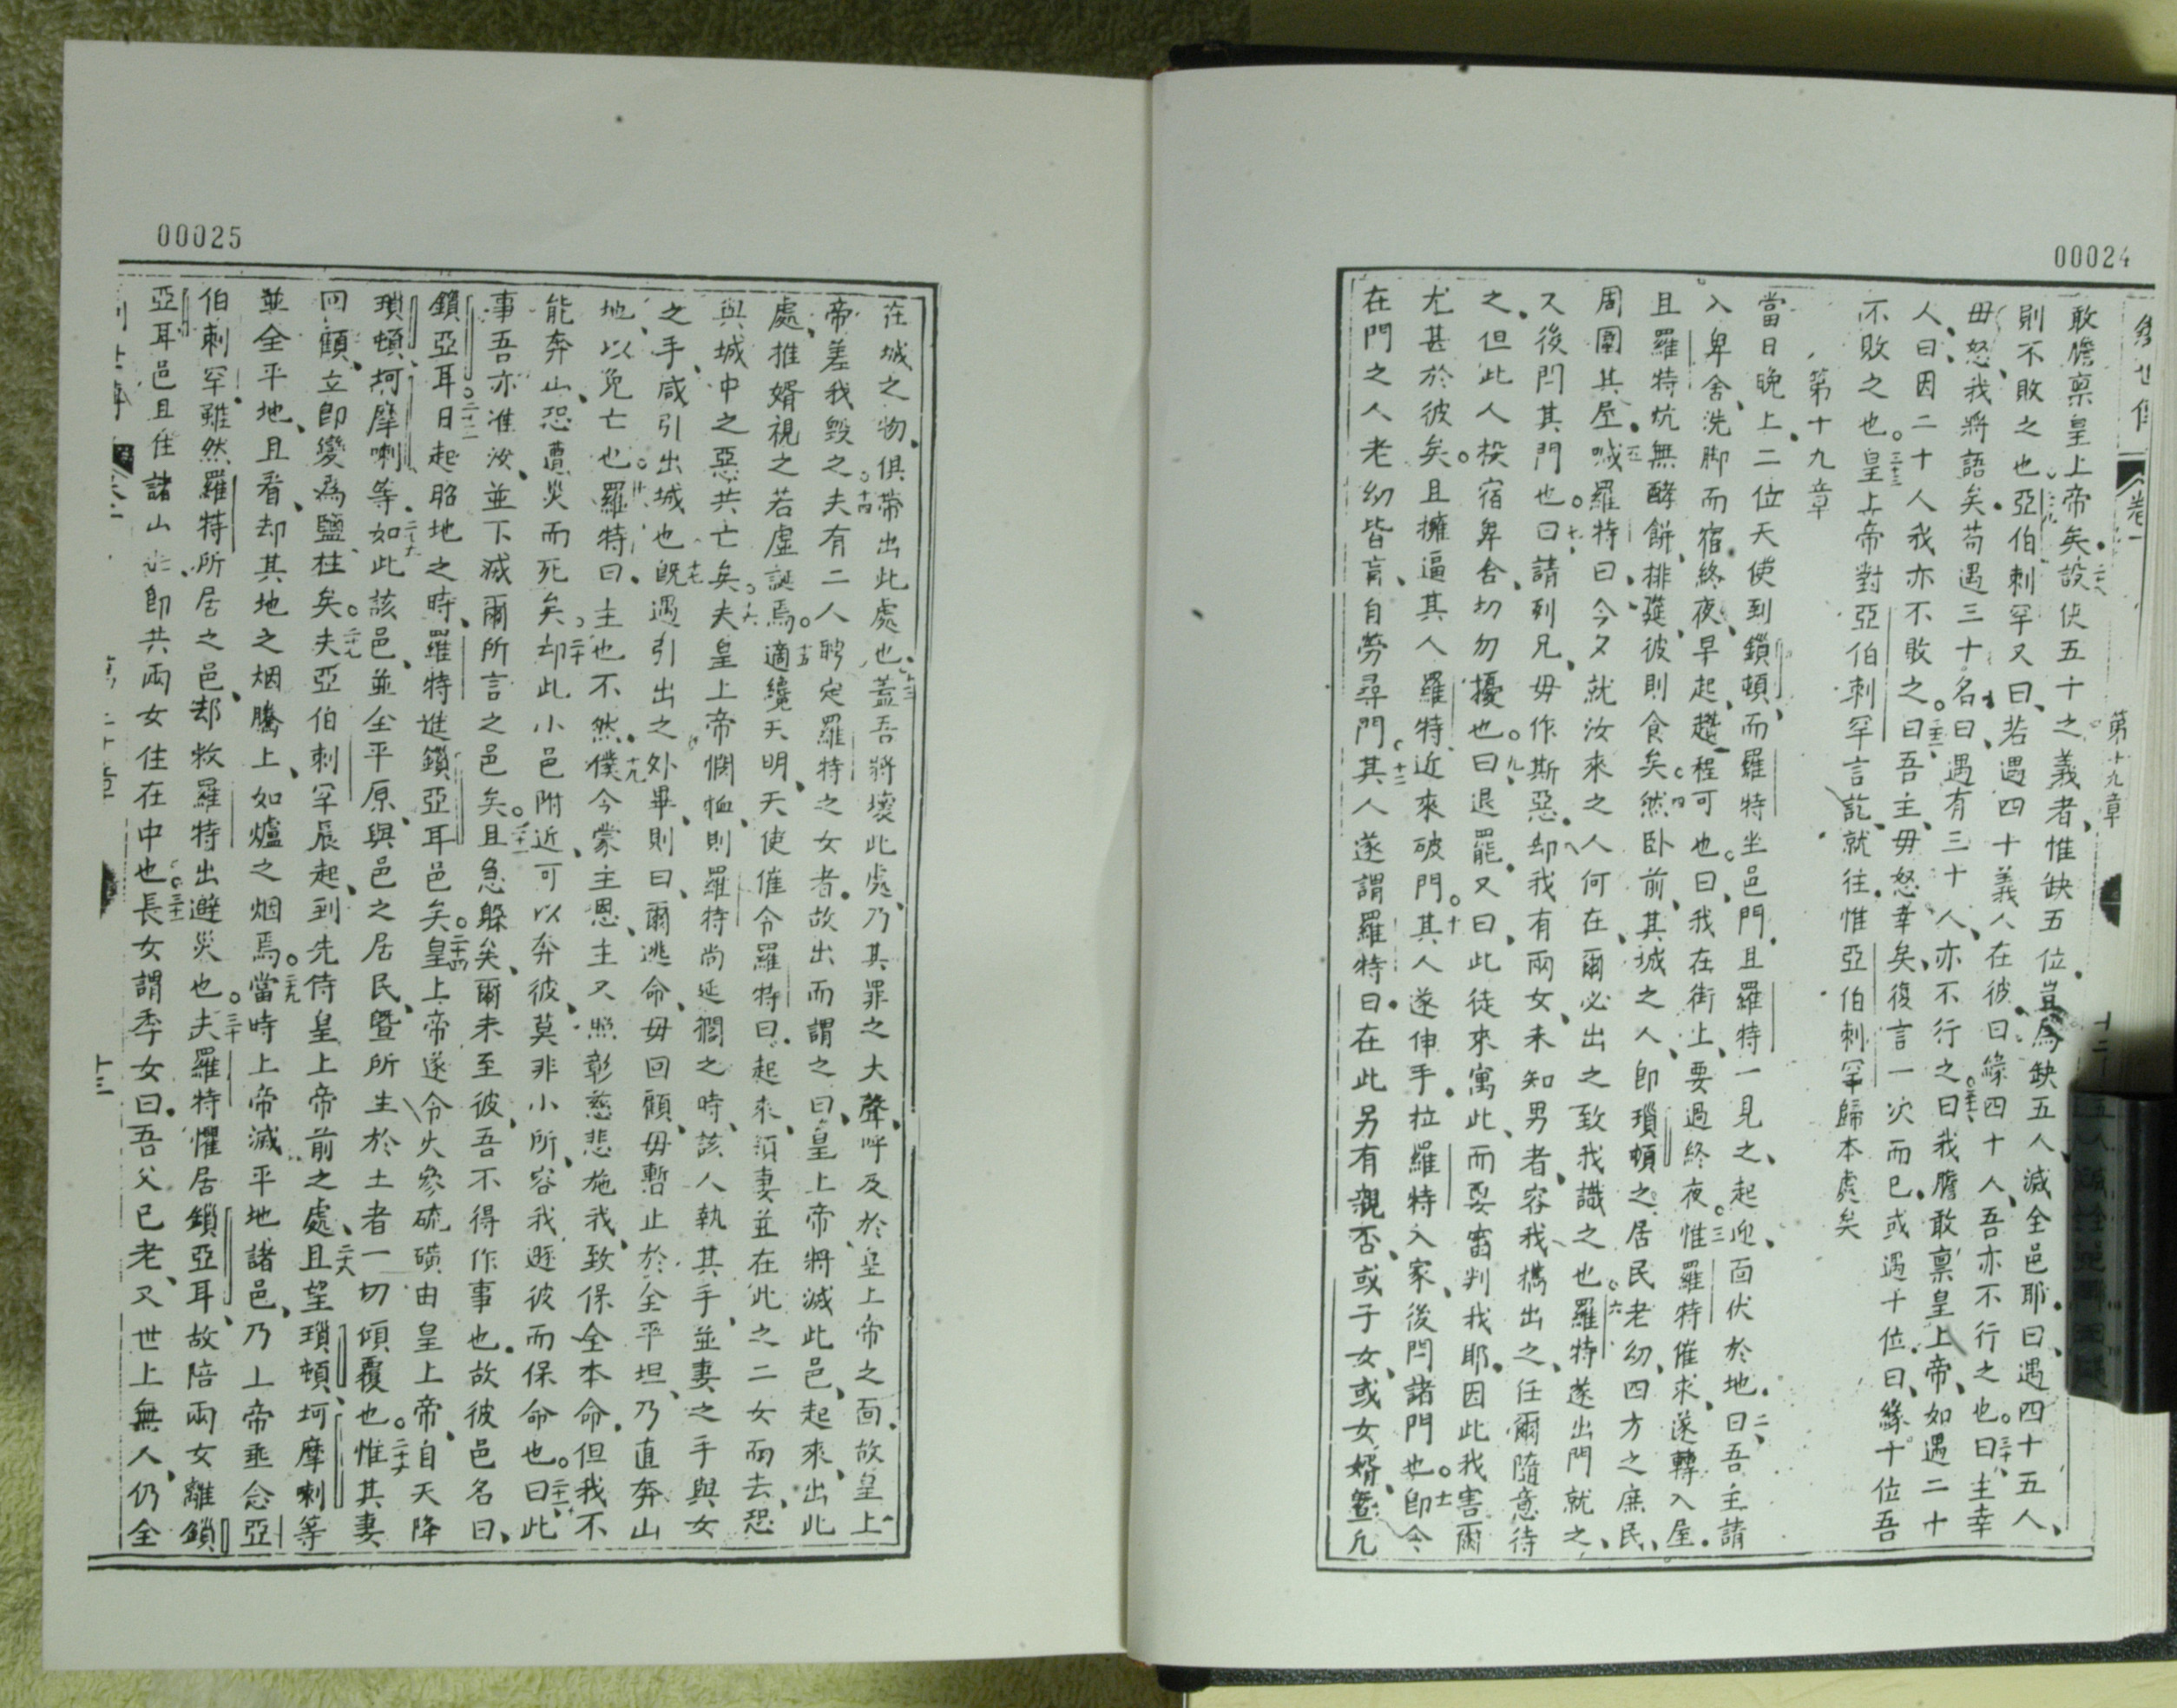 00024
敢膽稟皇上帝矣二十八設使五十之義者惟缺五位豈為缺五人滅全邑耶曰遇四十五人
則不敗之也二十九亞伯剌罕又曰若遇四十義人在彼曰緣四十人吾亦不行之也三十曰主幸
毋怒我將語矣苟遇三十名曰遇有三十人亦不行之三十一曰我膽敢稟皇上帝如遇二十
人曰因二十人我亦不敗之三十二曰吾主毋怒幸矣復言一次而已或遇十位曰緣十位吾
不敗之也三十三皇上帝對亞伯剌罕言訖就往惟亞伯剌罕歸本處矣
第十九章
當日晚上二位天使到鎖頓而羅特坐邑門且羅特一見之起迎面伏於地二曰吾主請
入卑舍洗脚而宿終夜早起趲程可也曰我在街上要過終夜三惟羅特催求遂轉入屋
且羅特炕無酵餅排筵彼則食矣四然臥前其城之人即瑣頓之居民老幼四方之庶民
周圍其屋五喊羅特曰今夕就汝來之人何在爾必出之致我識之也六羅特遂出門就之
又後閂其門也七曰請列兄毋作斯惡八却我有兩女未知男者容我攜出之任爾隨意待
之但此人投宿卑舍切勿擾也九曰退罷又曰此徒來寓此而耍當判我耶因此我害爾
尤甚於彼矣且擁逼其人羅特近來破門十其人遂伸手拉羅特入家後閂諸門也十一即令
在門之人老幼皆盲自勞尋門十二其人遂謂羅特曰在此另有親否或子女或女婿曁凡
第十九章
00025
在城之物俱帶出此處也十三蓋吾將壞此處乃其罪之大聲呼及於皇上帝之面故皇上
帝差我毀之十四夫有二人聘定羅特之女者故出而謂之曰皇上帝將滅此邑起來出此
處推婿視之若虛誕焉十五適纔天明天使催令羅特曰起來須妻並在此之二女而去恐
與城中之惡共亡矣十六夫皇上帝憫恤則羅特尚延擱之時該人執其手並妻之手與女
之手咸引出城也十七既遇引出之外畢則曰爾逃命毋回顧毋暫止於全平坦乃直奔山
地以免亡也十八羅特曰主也不然十九僕今蒙主恩主又照彰慈悲施我致保全本命但我不
能奔山恐遭災而死矣二十却此小邑附近可以奔彼莫非小所容我遯彼而保命也二十一曰此
事吾亦准汝並下滅爾所言之邑矣二十二且急躲矣爾未至彼吾不得作事也故彼邑名曰
鎖亞耳二十三日起昭地之時羅特進鎖亞耳邑矣二十四皇上帝遂令火參硫磺由皇上帝自天降
瑣頓坷摩喇等二十五如此該邑並全平原與邑之居民曁所生於土者一切傾覆也二十六惟其妻
回顧立即變為鹽柱矣二十七夫亞伯剌罕辰起到先侍皇上帝前之處二十八且望瑣頓坷摩喇等
並全平地且看却其地之烟騰上如爐之烟焉二十九當時上帝滅平地諸邑乃上帝垂念亞
伯剌罕雖然羅特所居之邑却救羅特出避災也三十夫羅特懼居鎖亞耳故陪兩女離鎖
亞耳邑且住諸山 即共兩女住在中也三十一長女謂季女曰吾父已老又世上無人仍全
十三